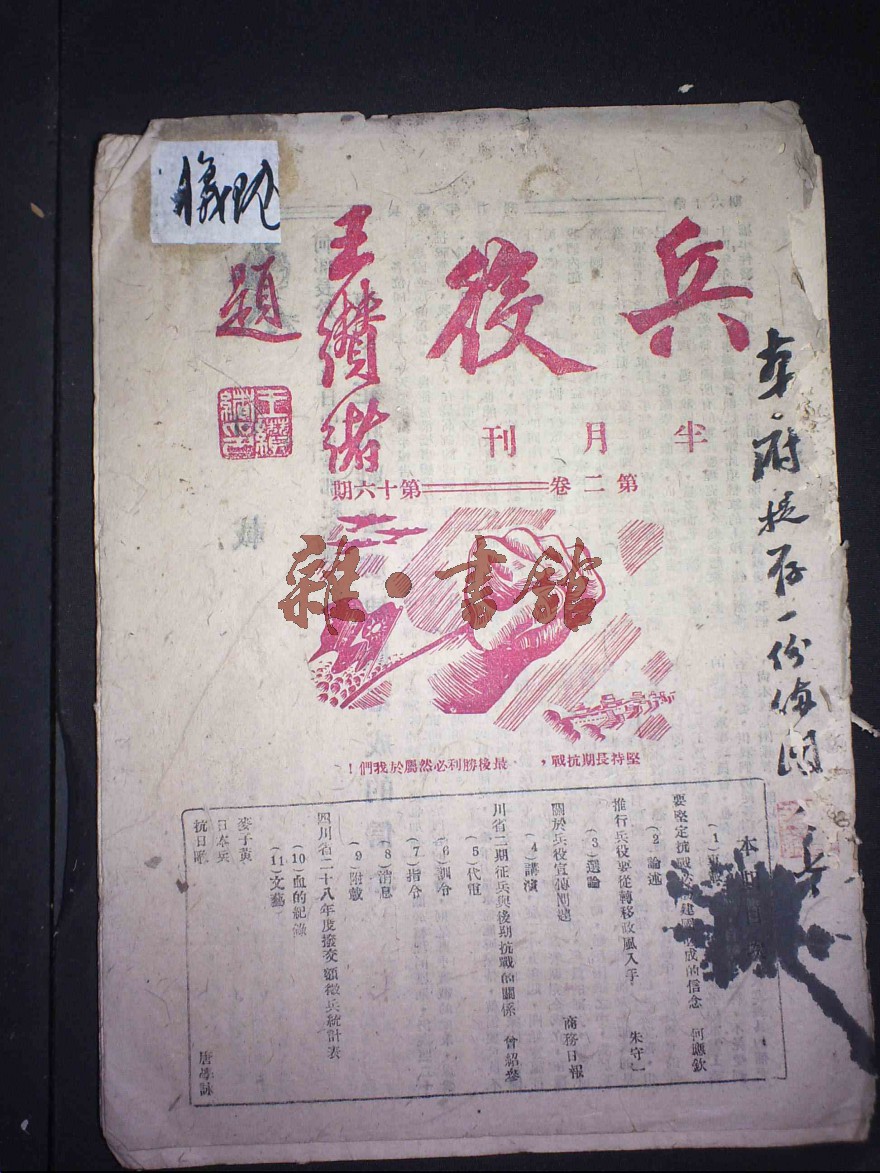 兵役
王纘緒
題
半月刊
第二卷══════第十六期
堅持長期抗戰,最後勝利必然屬於我們!
雜·書館
存一份備
本
(1)
要堅定抗戰必勝建國必成的信念 何應欽
(2)論述
推行兵役要從轉移政風入手 朱守一
(3)選論
關於兵役宣傳問題 商務日報
(4)講演
川省二期征兵與後期抗戰的關係 曾紹
(5)代電
(6)訓令
(7)指令
(8)消息
(9)附載
四川省二十八年度撥交額徵兵統計表
(10)血的紀錄
(11)文藝
麥子黃
日本兵
抗日歌 唐學詠